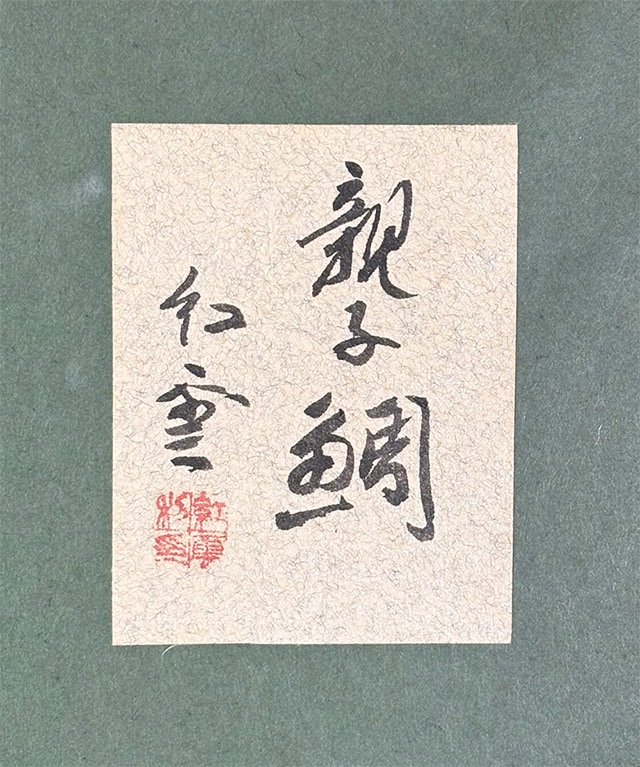 親子鯛
紅雲